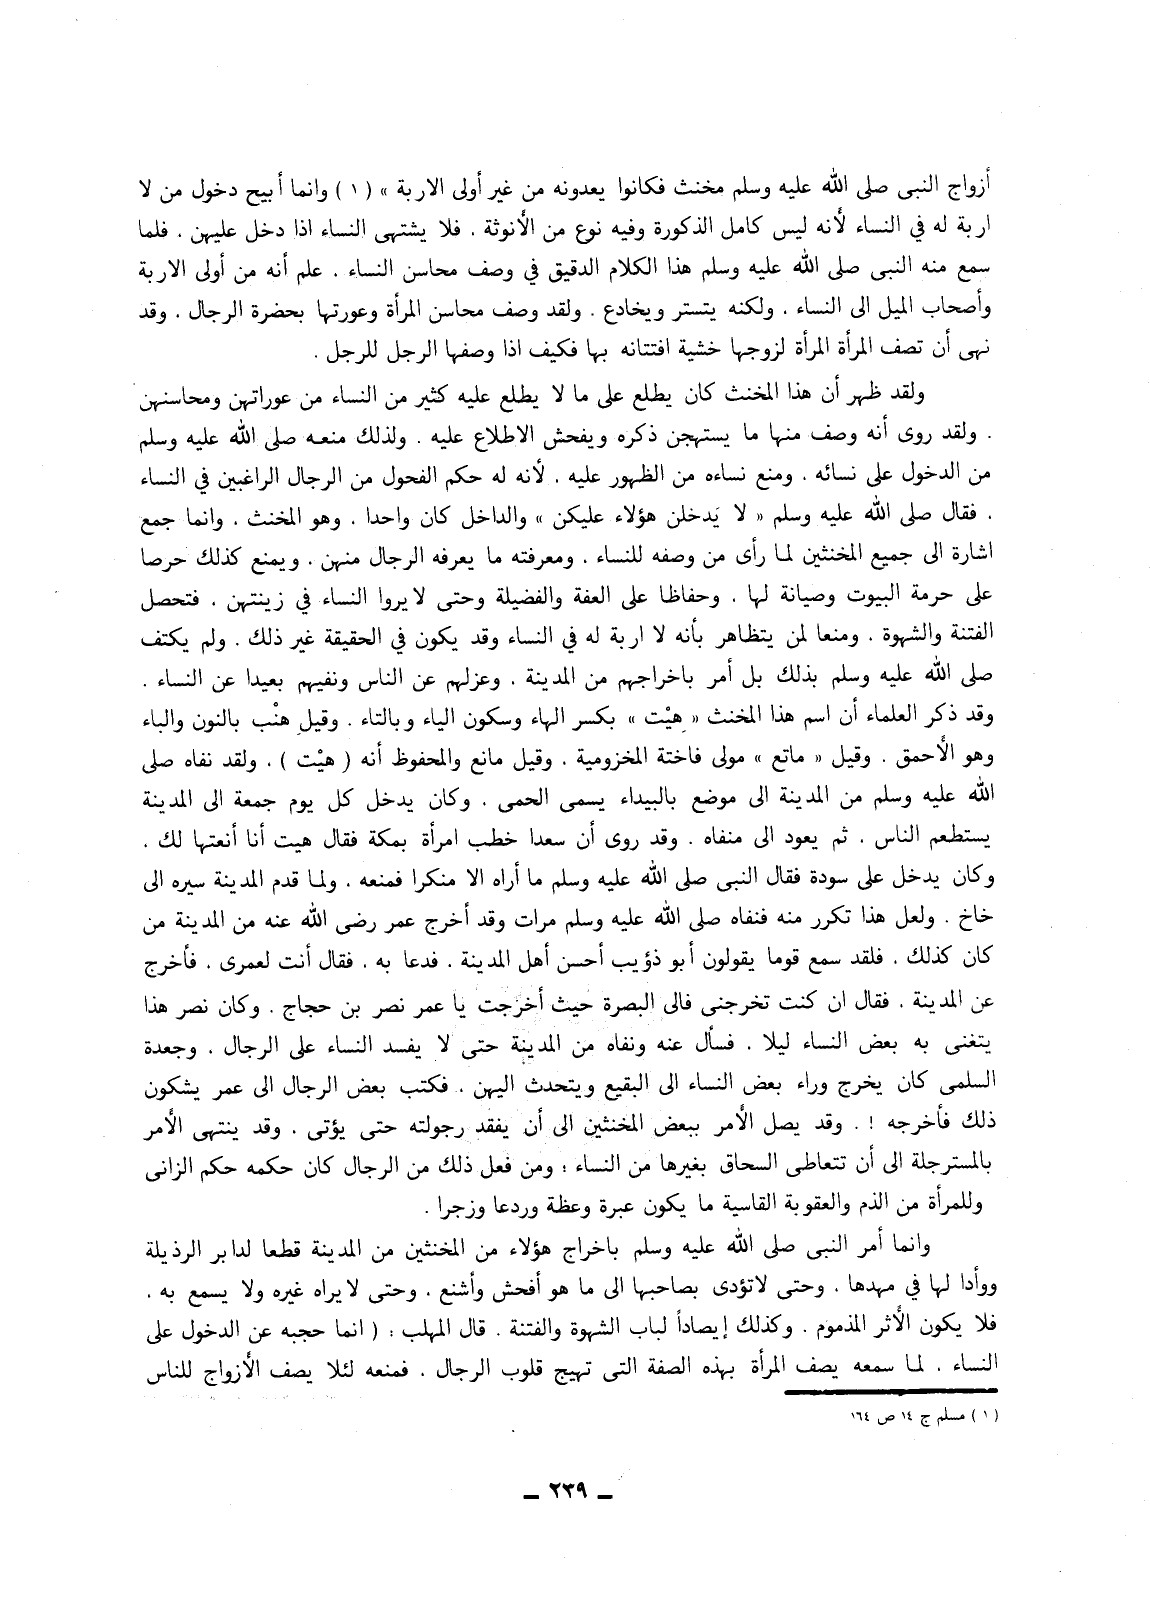 أزواج النبى صلى الله عليه وسلم مخنث فكانوا يعدونه من غير أولى الاربة » ( ١ ) وانما أبيح دخول من لا
اربة له في النساء لأنه ليس كامل الذكورة وفيه نوع من الأنوثة . فلا يشتهى النساء اذا دخل عليهن . فلما
سمع منه النبى صلى الله عليه وسلم هذا الكلام الدقيق في وصف محاسن النساء . علم أنه من أولى الاربة
وأصحاب الميل الى النساء . ولكنه يتستر ويخادع . ولقد وصف محاسن المرأة وعورتها بحضرة الرجال . وقد
نهى أن تصف المرأة المرأة لزوجها خشية افتتانه بها فكيف اذا وصفها الرجل للرجل .
ولقد ظهر أن هذا المخنث كان يطلع على ما لا يطلع عليه كثير من النساء من عوراتهن ومحاسنهن
. ولقد روى أنه وصف منها ما يستهجن ذكره ويفحش الاطلاع عليه . ولذلك منعه صلى الله عليه وسلم
من الدخول على نسائه . ومنع نساءه من الظهور عليه . لأنه له حكم الفحول من الرجال الراغبين في النساء
. فقال صلى الله عليه وسلم « لا يَدخلن هؤلاء عليكن » والداخل كان واحدا . وهو المخنث . وانما جمع
اشارة الى جميع المخنثين لما رأى من وصفه للنساء . ومعرفته ما يعرفه الرجال منهن . ويمنع كذلك حرصا
على حرمة البيوت وصيانة لها . وحفاظا على العفة والفضيلة وحتى لا يروا النساء في زينتهن . فتحصل
الفتنة والشهوة . ومنعا لمن يتظاهر بأنه لا اربة له في النساء وقد يكون في الحقيقة غير ذلك . ولم يكتف
صلى الله عليه وسلم بذلك بل أمر باخراجهم من المدينة . وعزلهم عن الناس ونفيهم بعيدا عن النساء .
وقد ذكر العلماء أن اسم هذا المخنث « هِيْت » بكسر الهاء وسكون الياء وبالتاء . وقيل هنْب بالنون والباء
وهو الأحمق . وقيل « ماتع » مولى فاختة المخزومية . وقيل مانع والمحفوظ أنه ( هيْت ) . ولقد نفاه صلى
الله عليه وسلم من المدينة الى موضع بالبيداء يسمى الحمى . وكان يدخل كل يوم جمعة الى المدينة
يستطعم الناس . ثم يعود الى منفاه . وقد روى أن سعدا خطب امرأة بمكة فقال هيت أنا أنعتها لك .
وكان يدخل على سودة فقال النبى صلى الله عليه وسلم ما أراه الا منكرا فمنعه . ولما قدم المدينة سيره الى
خاخ . ولعل هذا تكرر منه فنفاه صلى الله عليه وسلم مرات وقد أخرج عمر رضى الله عنه من المدينة من
كان كذلك . فلقد سمع قوما يقولون أبو ذؤيب أحسن أهل المدينة . فدعا به . فقال أنت لعمرى . فأخرج
عن المدينة . فقال ان كنت تخرجنى فالى البصرة حيث أخرجت يا عمر نصر بن حجاج . وكان نصر هذا
يتغنى به بعض النساء ليلا . فسأل عنه ونفاه من المدينة حتى لا يفسد النساء على الرجال . وجعدة
السلمى كان يخرج وراء بعض النساء الى البقيع ويتحدث اليهن . فكتب بعض الرجال الى عمر يشكون
ذلك فأخرجه ! . وقد يصل الأمر ببعض المخنثين الى أن يفقد رجولته حتى يؤتى . وقد ينتهى الأمر
بالمسترجلة الى أن تتعاطى السحاق بغيرها من النساء ؛ ومن فعل ذلك من الرجال كان حكمه حكم الزانى
وللمرأة من الذم والعقوبة القاسية ما يكون عبرة وعظة وردعا وزجرا .
وانما أمر النبى صلى الله عليه وسلم باخراج هؤلاء من المخنثين من المدينة قطعا لدابر الرذيلة
ووأدا لها في مهدها . وحتى لاتؤدى بصاحبها الى ما هو أفحش وأشنع . وحتى لا يراه غيره ولا يسمع به .
فلا يكون الأثر المذموم . وكذلك إيصاداً لباب الشهوة والفتنة . قال المهلب : ( انما حجبه عن الدخول على
النساء . لما سمعه يصف المرأة بهذه الصفة التى تهيج قلوب الرجال . فمنعه لئلا يصف الأزواج للناس
( ١ ) مسلم ج ١٤ ص ١٦٤
ـ ٢٣٩ ـ